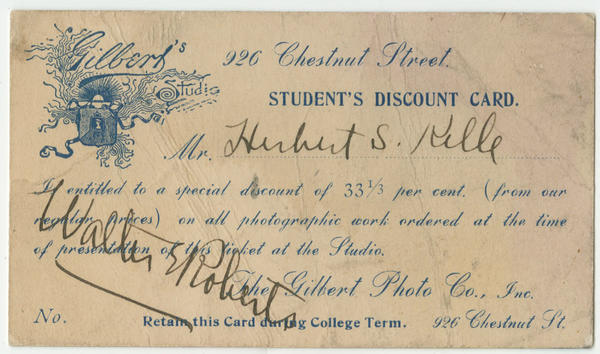 Gilbert's Studio
926 Chestnut Street.
STUDENT'S DISCOUNT CARD.
Mr. Herbert S. Kille
Is entitled to a special discount of 33 1/3 per cent. (from our
regular prices) on all photographic work ordered at the time
of presentation of this ticket at the Studio.
Walter E Roberts
The Gilbert Photo Co., Inc.
No. Retain this Card during College Term. 926 Chestnut St.